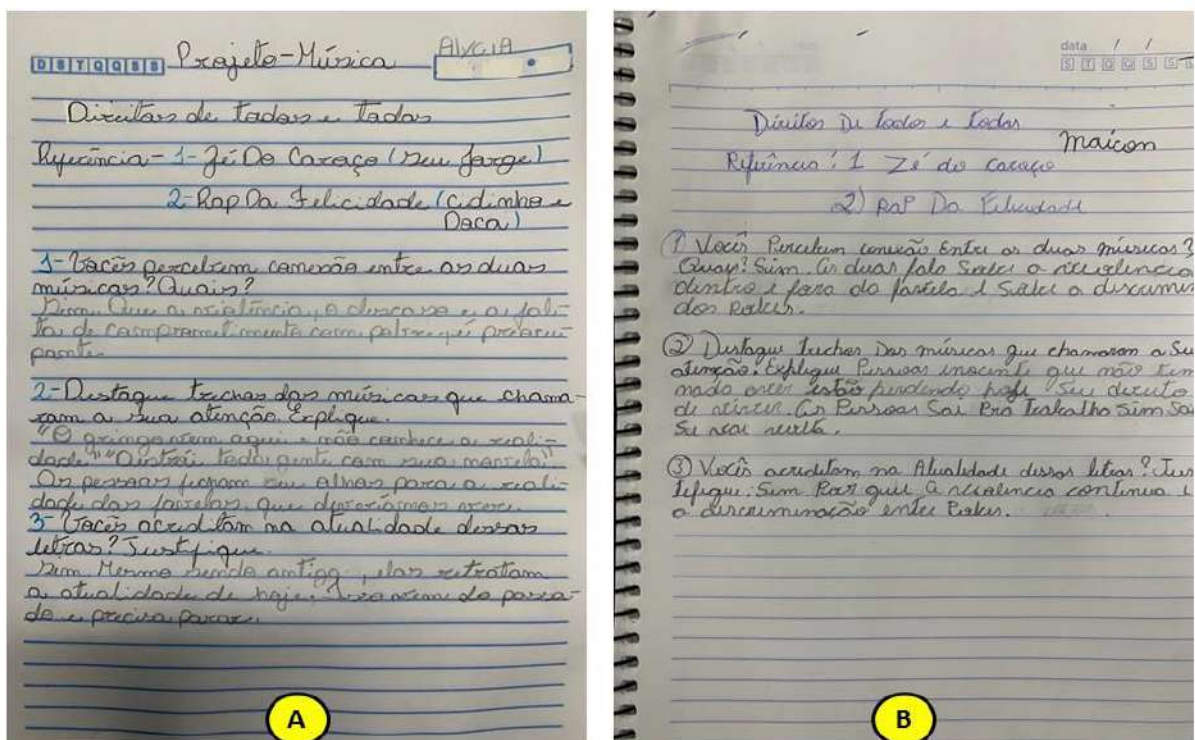 D S T Q Q S S Projeto-Música
Direitos de todos e todas
Referência - 1- Zé Do Caroço (Seu Jorge)
2- Rap Da Felicidade (Cidinho e
Doca)
1- Vocês percebem conexão entre as duas
músicas? Quais?
Sim. Que a violência, o descaso e a fal-
ta de comprometimento com pobre, é preocu-
pante.
2- Destaque trechos das músicas que chama-
ram a sua atenção. Explique.
"O gringo vem aqui e não conhece a reali-
dade" "Distrái toda gente com sua novela"
As pessoas fecham seu olhos para a reali-
dade das favelas, que
3- Vocês acreditam na atualidade dessas
letras? Justifique.
Sim. Mesmo sendo antiga, elas retratam
a atualidade de hoje. Isso vem do passa-
do e precisa parar.
A
data / /
S T Q Q S S
Direitos De todos e todas
Maicon
Referência: 1 Zé do caroço
2) RaP Da Felicidade
1 Vocês Percebem conexão Entre as duas músicas?
Quay? Sim. As duas fala Sobre a violencia
dentro e fora da favela e Sobre a discumin
dos Pobres.
2 Destaque trechos Das músicas que chamaram a Su
atenção. Explique Pessoas inocente que não tem
nada aver estão perdendo hoje Seu direito
de viver. As Pessoas Sai Pra Trabalho Sim Sa
Se vai volta.
3 Vocês acreditam na Atualidade dessas letras? Jus
tifique. Sim Por que a violencia continua e
a discriminação entre Pobres.
B